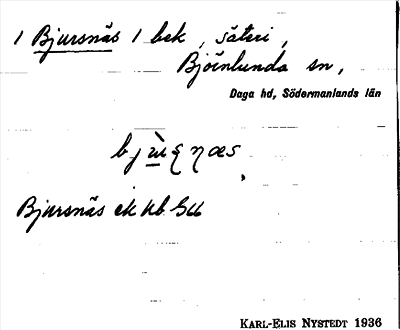 1 Bjursnäs 1 bek, säteri,
Björnlunda sn,
Daga hd, Södermanlands län
Bjursnäs ek Ub
KARL-ELIS NYSTEDT 1936